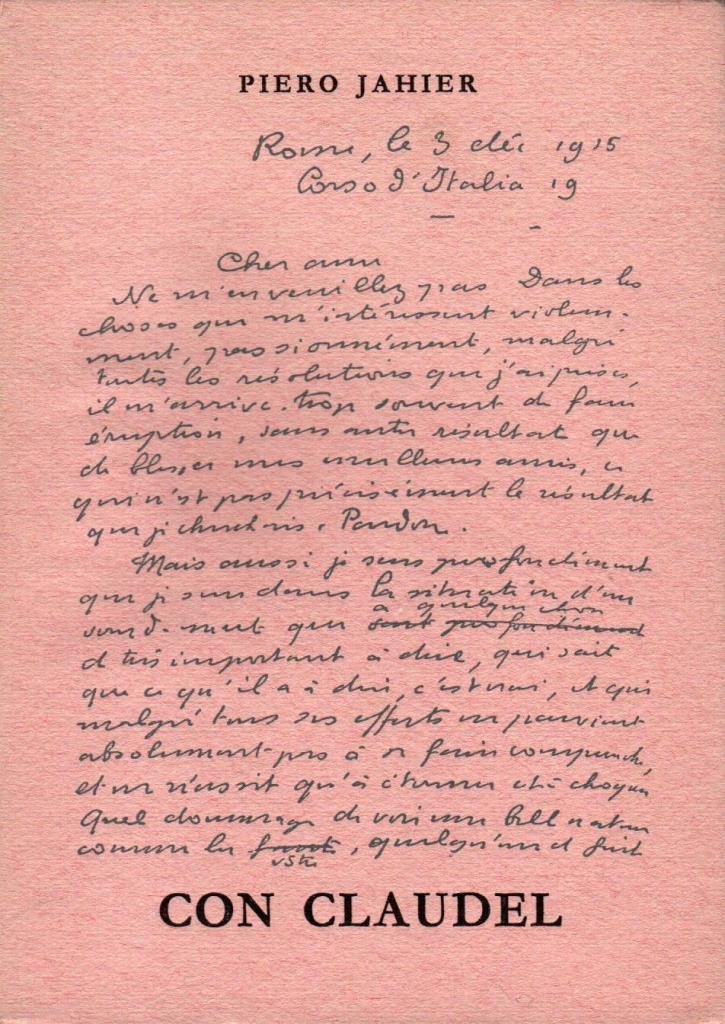 PIERO JAHIER
Rome, le 3 déc 1915
Corso d'Italia 19
Cher ami
Ne m'en veuillez pas Dans les
choses qui m'intéressent violem-
ment, passionnément, malgré
toutes les résolutions que j'ai prises,
il m'arrive trop souvent de faire
éruption, sans autre résultat que
de blesser mes meilleurs amis, ce
qui n'est pas précisément le résultat
que je cherchais. Pardon.
Mais aussi je sens profondément
que je suis dans la situation d'un
sourd-muet qui a quelque chose
de très important à dire, qui sait
que ce qu'il a à dire, c'est vrai, et qui
malgré tous ses efforts ne parvient
absolument pas à se faire comprendre,
et ne réussit qu'à étonner et à choquer
Quel dommage de voir une belle nature
comme la vôtre, quelqu'un de fait
CON CLAUDEL